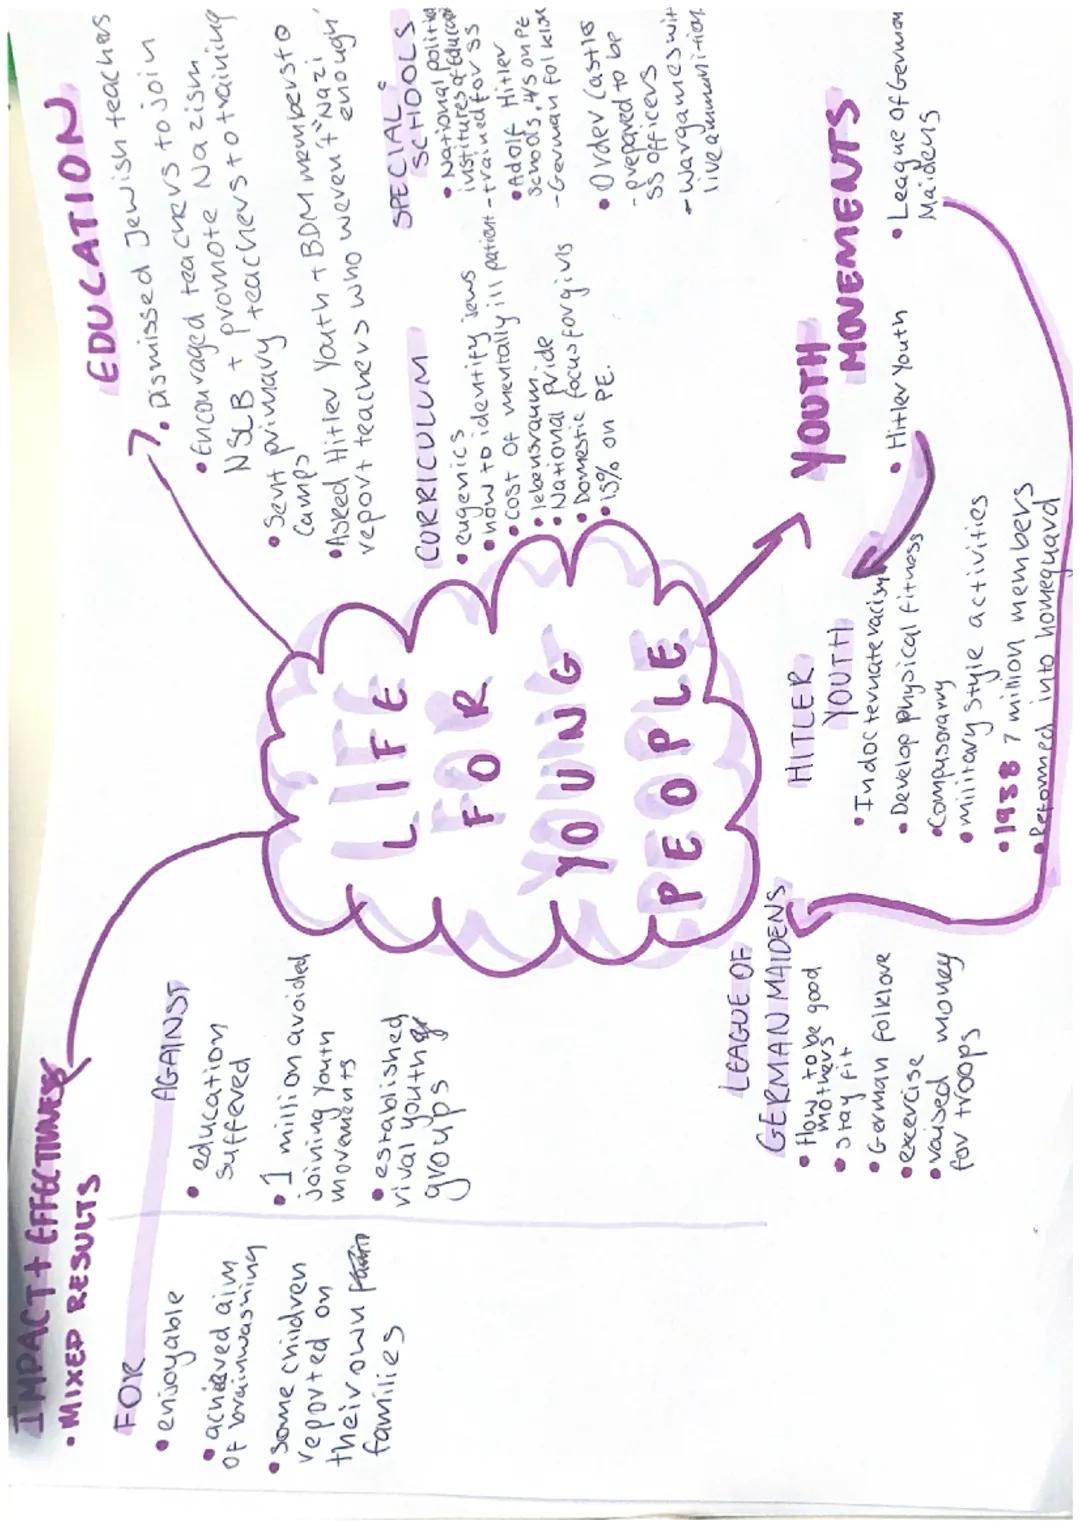 LIFE
FOR
YOUNG
PEOPLE
EDUCATION
• Dismissed Jewish teachers
• Encouraged teachers to join
NSLB + promote Nazism
• Sent primary teachers to training
camps
• Asked Hitler Youth + BDM members to
report teachers who weren't "Nazi
enough"
CURRICULUM
• eugenics
• how to identify jews
• cost of mentally ill patient
• lebensraum
• National pride
• Domestic focus for girls
• 15% on PE.
SPECIAL
SCHOOLS
• National political
institutes of Education
- trained for SS
• Adolf Hitler
Schools, 4/5 on PE
- German folklore
• Order Castles
- prepared to be
SS officers
- wargames with
live ammunition
YOUTH
MOVEMENTS
• Hitler Youth
• League of German
Maidens
HITLER
YOUTH
• Indocternate racism
• Develop physical fitness
• Compusorary
• military style activities
• 1938 7 million members
• Reformed into homeguard
LEAGUE OF
GERMAN MAIDENS
• How to be good
mothers
• stay fit
• German folklore
• exercise
• raised money
for troops
IMPACT + EFFECTIVNESS
• MIXED RESULTS
FOR
• enjoyable
• achieved aim
of brainwashing
• some children
reported on
their own
families
AGAINST
• education
suffered
• 1 million avoided
joining youth
movements
• established
rival youth
groups